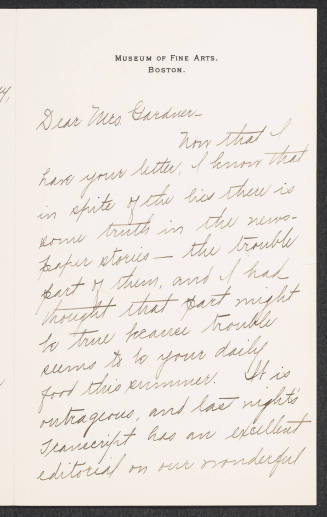 Museum of Fine Arts,
Boston.
Dear Mrs. Gardner—
Now that I
have your letter, I know that
in spite of the lies there is
some truth in the news-
paper stories — the trouble
part of them, and I had
thought that part might
be true because trouble
seems to be your daily
food this summer. It is
outrageous, and last night's
Transcript has an excellent
editorial on our wonderful